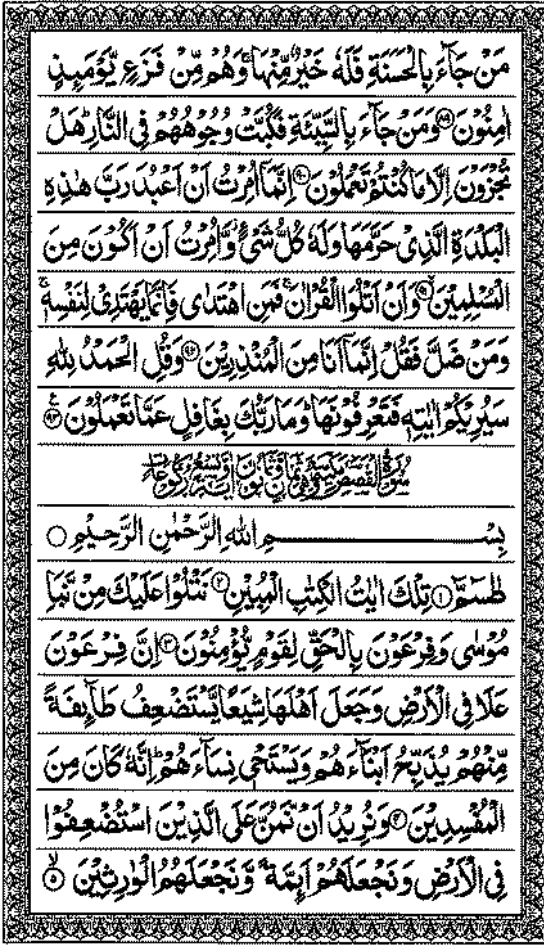 مَنْ جَآءَ بِالْحَسَنَةِ فَلَهٗ خَيْرٌ مِّنْهَا ۚ وَهُمْ مِّنْ فَزَعٍ يَّوْمَىِٕذٍ
اٰمِنُوْنَ ﴿۸۹﴾ وَمَنْ جَآءَ بِالسَّيِّئَةِ فَكُبَّتْ وُجُوْهُهُمْ فِى النَّارِ ؕ هَلْ
تُجْزَوْنَ اِلَّا مَا كُنْتُمْ تَعْمَلُوْنَ ﴿۹۰﴾ اِنَّمَاۤ اُمِرْتُ اَنْ اَعْبُدَ رَبَّ هٰذِهِ
الْبَلْدَةِ الَّذِىْ حَرَّمَهَا وَلَهٗ كُلُّ شَىْءٍ ؗ وَّاُمِرْتُ اَنْ اَكُوْنَ مِنَ
الْمُسْلِمِيْنَ ﴿۹۱﴾ وَاَنْ اَتْلُوَا الْقُرْاٰنَ ۚ فَمَنِ اهْتَدٰى فَاِنَّمَا يَهْتَدِىْ لِنَفْسِهٖ ۚ
وَمَنْ ضَلَّ فَقُلْ اِنَّمَاۤ اَنَا مِنَ الْمُنْذِرِيْنَ ﴿۹۲﴾ وَقُلِ الْحَمْدُ لِلّٰهِ
سَيُرِيْكُمْ اٰيٰتِهٖ فَتَعْرِفُوْنَهَا ؕ وَمَا رَبُّكَ بِغَافِلٍ عَمَّا تَعْمَلُوْنَ ﴿۹۳﴾
سُوْرَةُ الْقَصَصِ مَكِّيَّةٌ وَّهِىَ ثَمَانٍ وَّثَمَانُوْنَ اٰيَةً وَّتِسْعُ رُكُوْعَاتٍ
بِسْمِ اللّٰهِ الرَّحْمٰنِ الرَّحِيْمِ
طٰسٓمّٓ ﴿۱﴾ تِلْكَ اٰيٰتُ الْكِتٰبِ الْمُبِيْنِ ﴿۲﴾ نَتْلُوْا عَلَيْكَ مِنْ نَّبَاِ
مُوْسٰى وَفِرْعَوْنَ بِالْحَقِّ لِقَوْمٍ يُّؤْمِنُوْنَ ﴿۳﴾ اِنَّ فِرْعَوْنَ
عَلَا فِى الْاَرْضِ وَجَعَلَ اَهْلَهَا شِيَعًا يَّسْتَضْعِفُ طَآىِٕفَةً
مِّنْهُمْ يُذَبِّحُ اَبْنَآءَهُمْ وَيَسْتَحْىٖ نِسَآءَهُمْ ؕ اِنَّهٗ كَانَ مِنَ
الْمُفْسِدِيْنَ ﴿۴﴾ وَنُرِيْدُ اَنْ نَّمُنَّ عَلَى الَّذِيْنَ اسْتُضْعِفُوْا
فِى الْاَرْضِ وَنَجْعَلَهُمْ اَىِٕمَّةً وَّنَجْعَلَهُمُ الْوٰرِثِيْنَ ﴿۵﴾